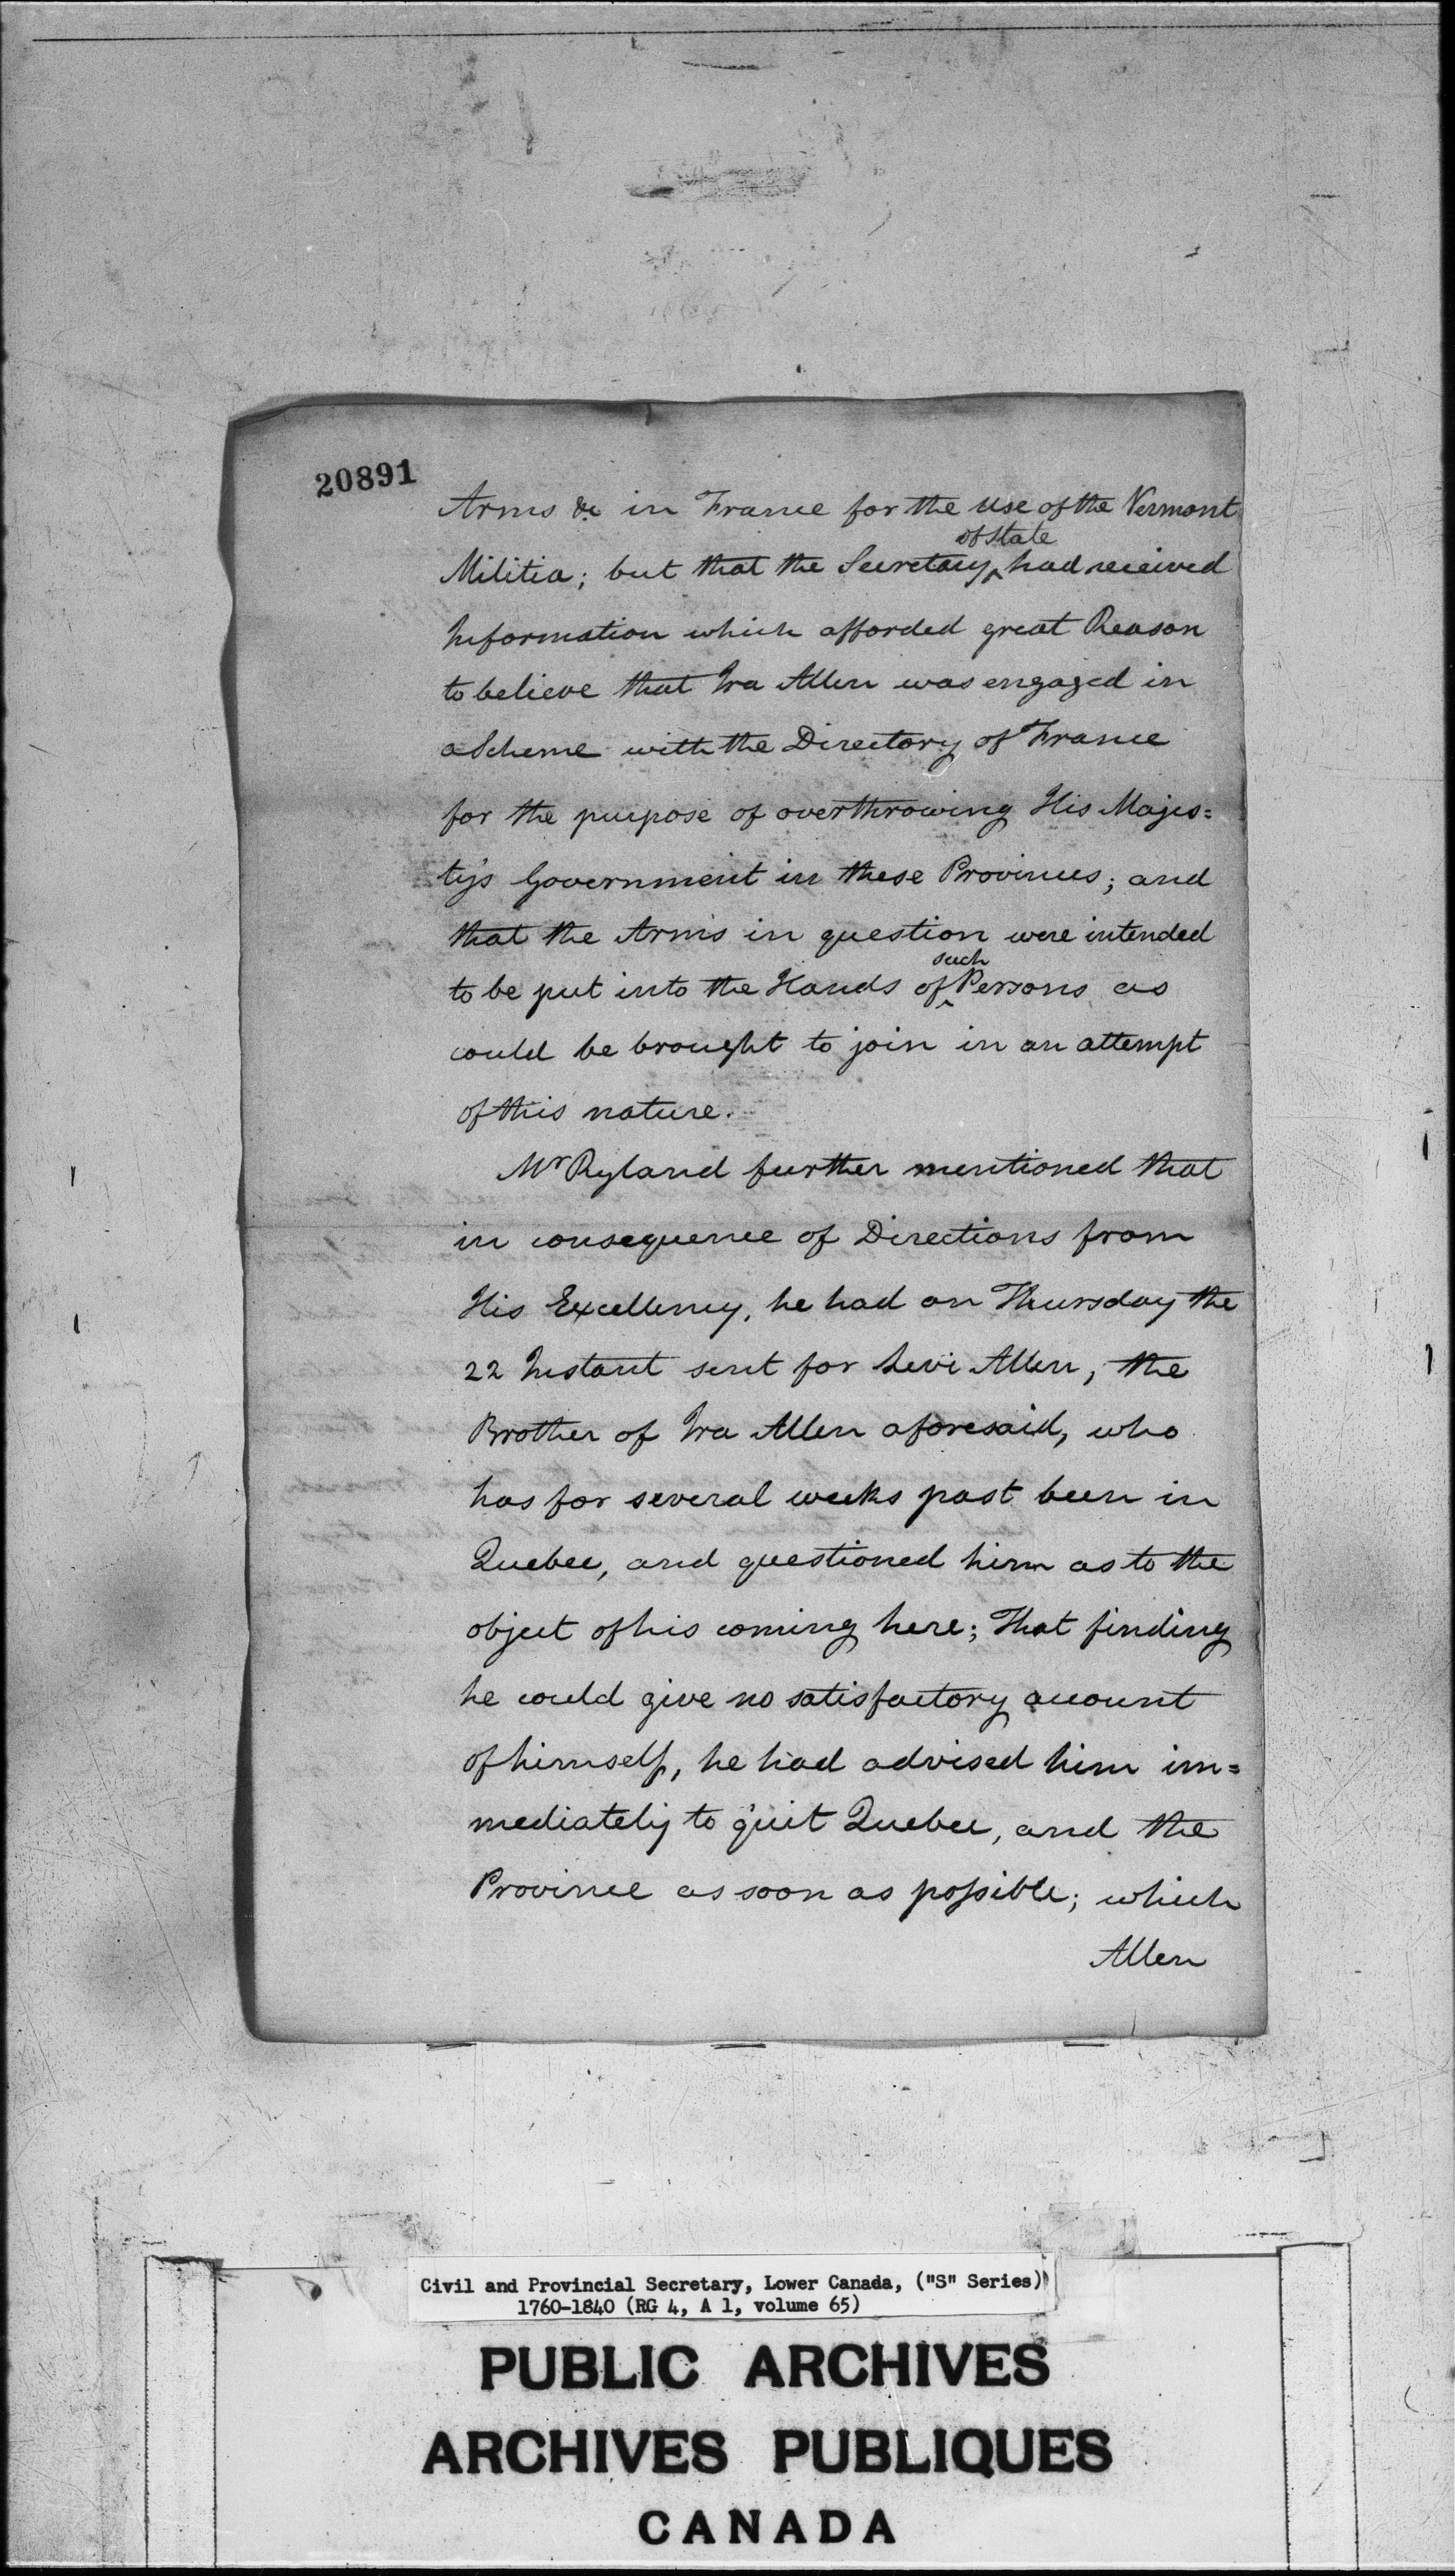 20891
Arms &c in France for the use of the Vermont
of State
Militia; but that the Secretary ^ had received
Information which afforded great Reason
to believe that Ira Allen was engaged in
a Scheme with the Directory of France
for the purpose of overthrowing His Majes=
ty's Government in these Provinces; and
that the Arms in question were intended
such
to be put into the Hands of ^ Persons as
could be brought to join in an attempt
of this nature.
Mr Ryland further mentioned that
in consequence of Directions from
His Excellency, he had on Thursday the
22 Instant sent for Levi Allen, the
Brother of Ira Allen aforesaid, who
has for several weeks past been in
Quebec, and questioned him as to the
object of his coming here; That finding
he could give no satisfactory account
of himself, he had advised him im=
mediately to quit Quebec, and the
Province as soon as possible; which
Allen
Civil and Provincial Secretary, Lower Canada, ("S" Series)
1760-1840 (RG 4, A 1, volume 65)
PUBLIC ARCHIVES
ARCHIVES PUBLIQUES
CANADA